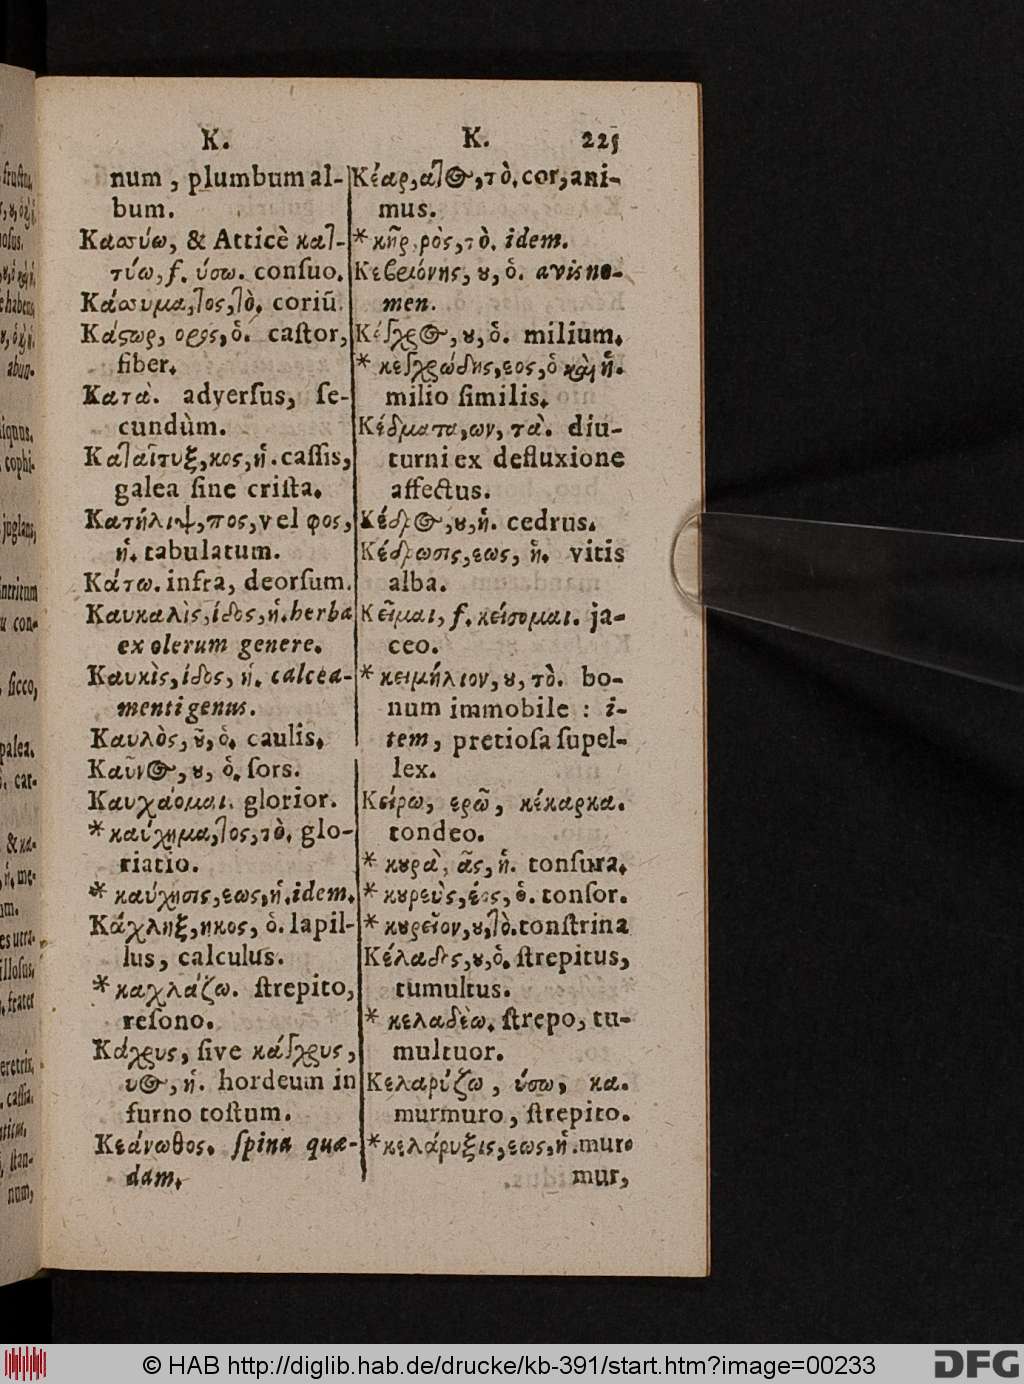 K.
num, plumbum al-
bum.
Κασσύω, & Atticè κατ-
τύω, f. ύσω. conſuo.
Κάσσυμα, τος, τὸ. coriũ.
Κάστωρ, ορος, ὁ. caſtor,
fiber.
Κατὰ. adverſus, ſe-
cundùm.
Καταῖτυξ, κος, ἡ. caſſis,
galea ſine criſta.
Κατήλιψ, πος, vel φος,
ἡ. tabulatum.
Κάτω. infra, deorſum.
Καυκαλὶς, ίδος, ἡ. herba
ex olerum genere.
Καυκὶς, ίδος, ἡ. calcea-
menti genus.
Καυλὸς, ȣ͂, ὁ. caulis.
Καῦνος, ȣ, ὁ. ſors.
Καυχάομαι. glorior.
* καύχημα, τος, τὸ. glo-
riatio.
* καύχησις, εως, ἡ. idem.
Κάχληξ, ηκος, ὁ. lapil-
lus, calculus.
* καχλάζω. ſtrepito,
reſono.
Κάχρυς, ſive κάγχρυς,
υος, ἡ. hordeum in
furno toſtum.
Κεάνωθος. ſpina quæ-
dam.
K. 225
Κέαρ, ατος, τὸ. cor, ani-
mus.
* κῆρ, ρὸς, τὸ. idem.
Κεβριόνης, ȣ, ὁ. avis no-
men.
Κέγχρος, ȣ, ὁ. milium.
* κεγχρώδης, εος, ὁ καὶ ἡ.
milio ſimilis.
Κέδματα, ων, τὰ. diu-
turni ex defluxione
affectus.
Κέδρος, ȣ, ἡ. cedrus.
Κέδρωσις, εως, ἡ. vitis
alba.
Κεῖμαι, f. κείσομαι. ja-
ceo.
* κειμήλιον, ȣ, τὸ. bo-
num immobile : i-
tem, pretioſa ſupel-
lex.
Κείρω, ερῶ, κέκαρκα.
tondeo.
* κȣρὰ, ᾶς, ἡ. tonſura.
* κȣρεὺς, έος, ὁ. tonſor.
* κȣρεῖον, ȣ, τὸ. tonſtrina
Κέλαδος, ȣ, ὁ. ſtrepitus,
tumultus.
* κελαδέω. ſtrepo, tu-
multuor.
Κελαρύζω, ύσω, κα.
murmuro, ſtrepito.
* κελάρυξις, εως, ἡ. mur-
mur,
© HAB http://diglib.hab.de/drucke/kb-391/start.htm?image=00233
DFG